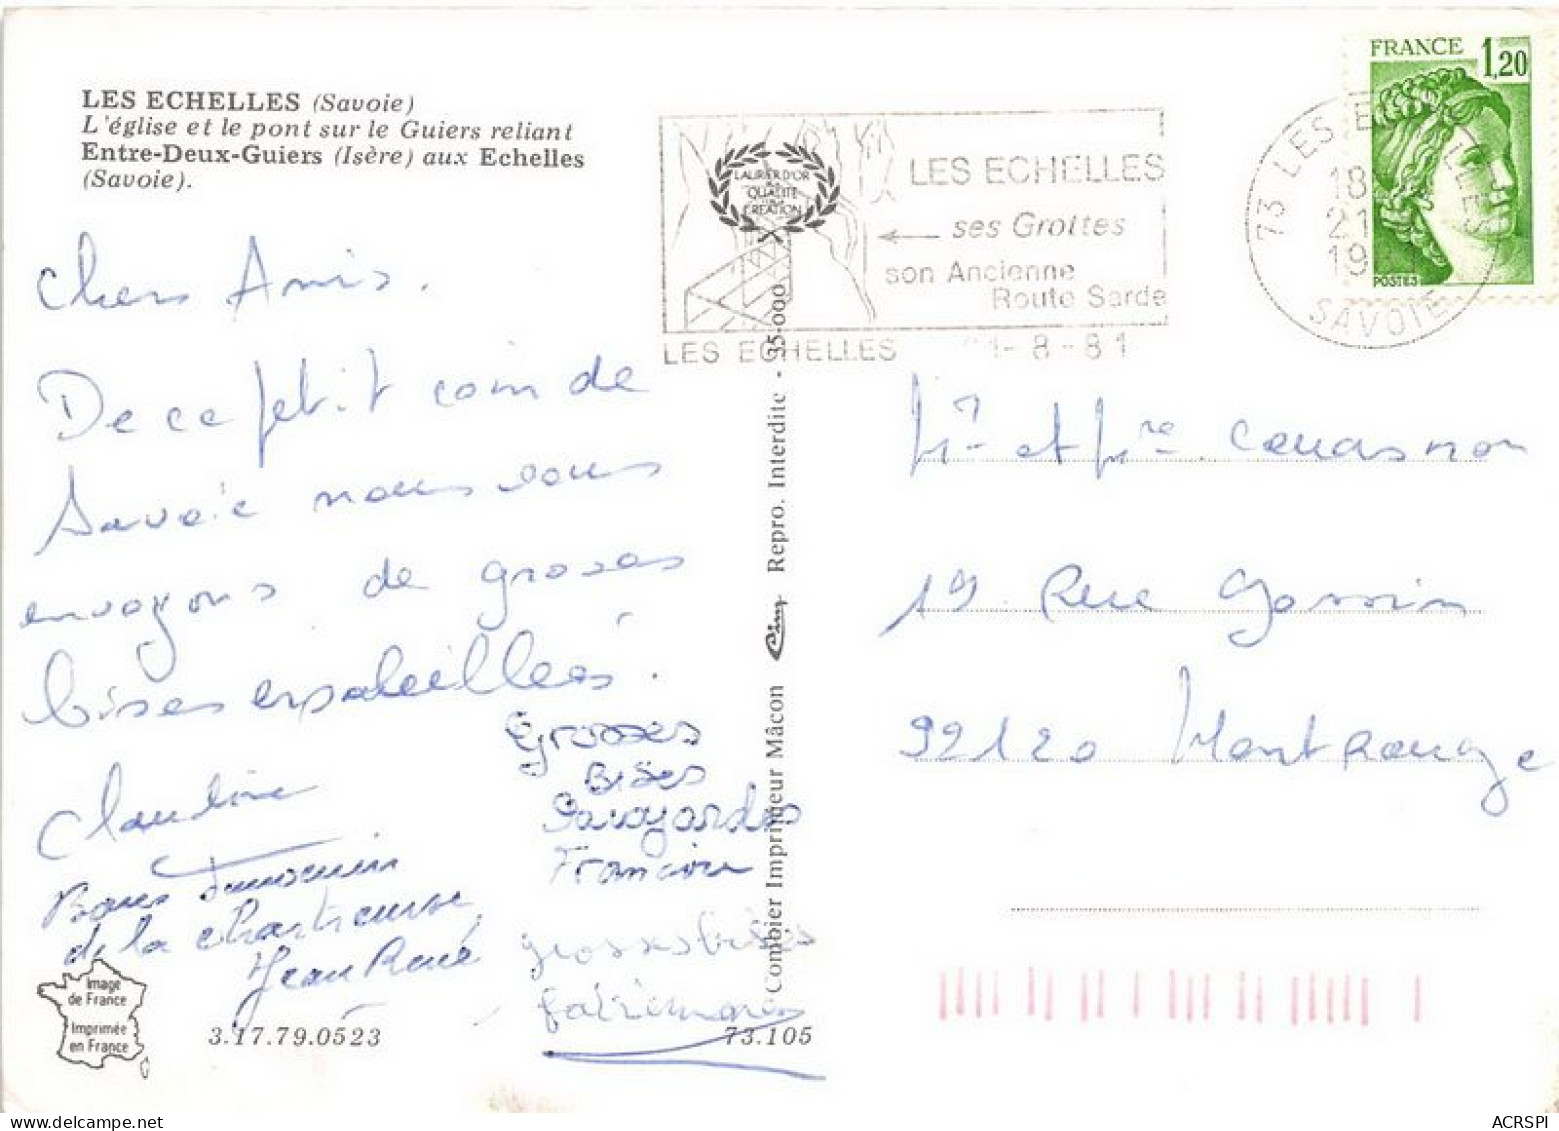 LES ECHELLES (Savoie)
L'église et le pont sur le Guiers reliant
Entre-Deux-Guiers (Isère) aux Echelles
(Savoie).
Chers Amis.
De ce petit coin de
Savoie nous vous
envoyons de grosses
bises ensoleillées.
Claudine
Bons Souvenirs
de la Chartreuse
Jean René
Grosses
Bises
Savoyardes
Francine
grosses bises
Image
de France
Imprimée
en France
3.17.79.0523
73.105
Combier Imprimeur Mâcon Cim Repro. Interdite - 35.000
LAURIER D'OR
QUALITÉ
CRÉATION
LES ECHELLES
ses Grottes
son Ancienne
Route Sarde
LES ECHELLES 21-8-81
73 LES ECHELLES
18
21
19
SAVOIE
FRANCE 1,20
POSTES
Mr et Mme
19 Rue Gossin
92120 Montrouge
ACRSPI